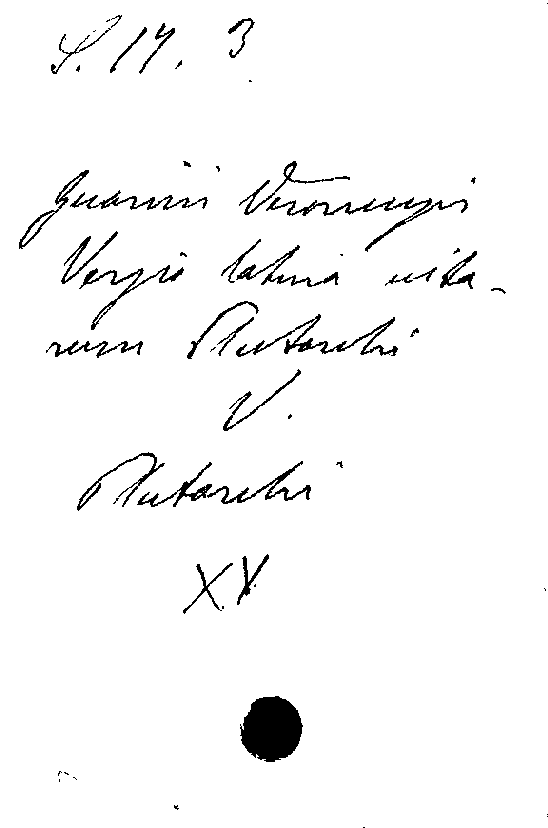 S. 17. 3
Guarini Veronensis
Versio latina vita-
rum Plutarchi
V.
Plutarchi
XV